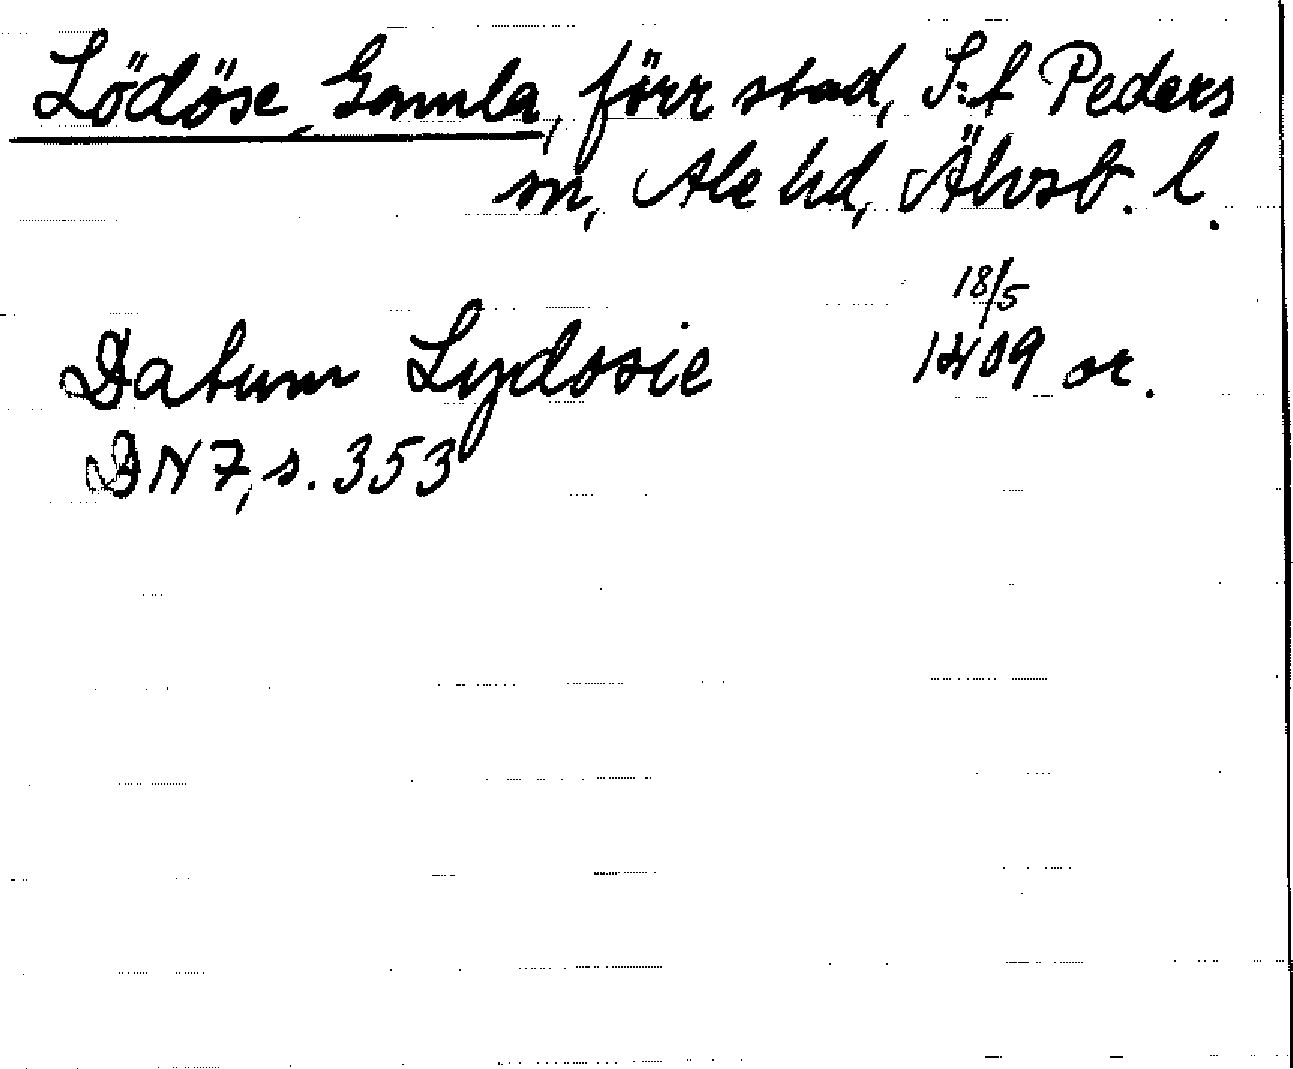 Lödöse, Gamla, förr stad, S:t Peders
sn, Ale hd, Älvsb. l.
Datum Lydosie 18/5 1409 or.
DN 7, s. 353